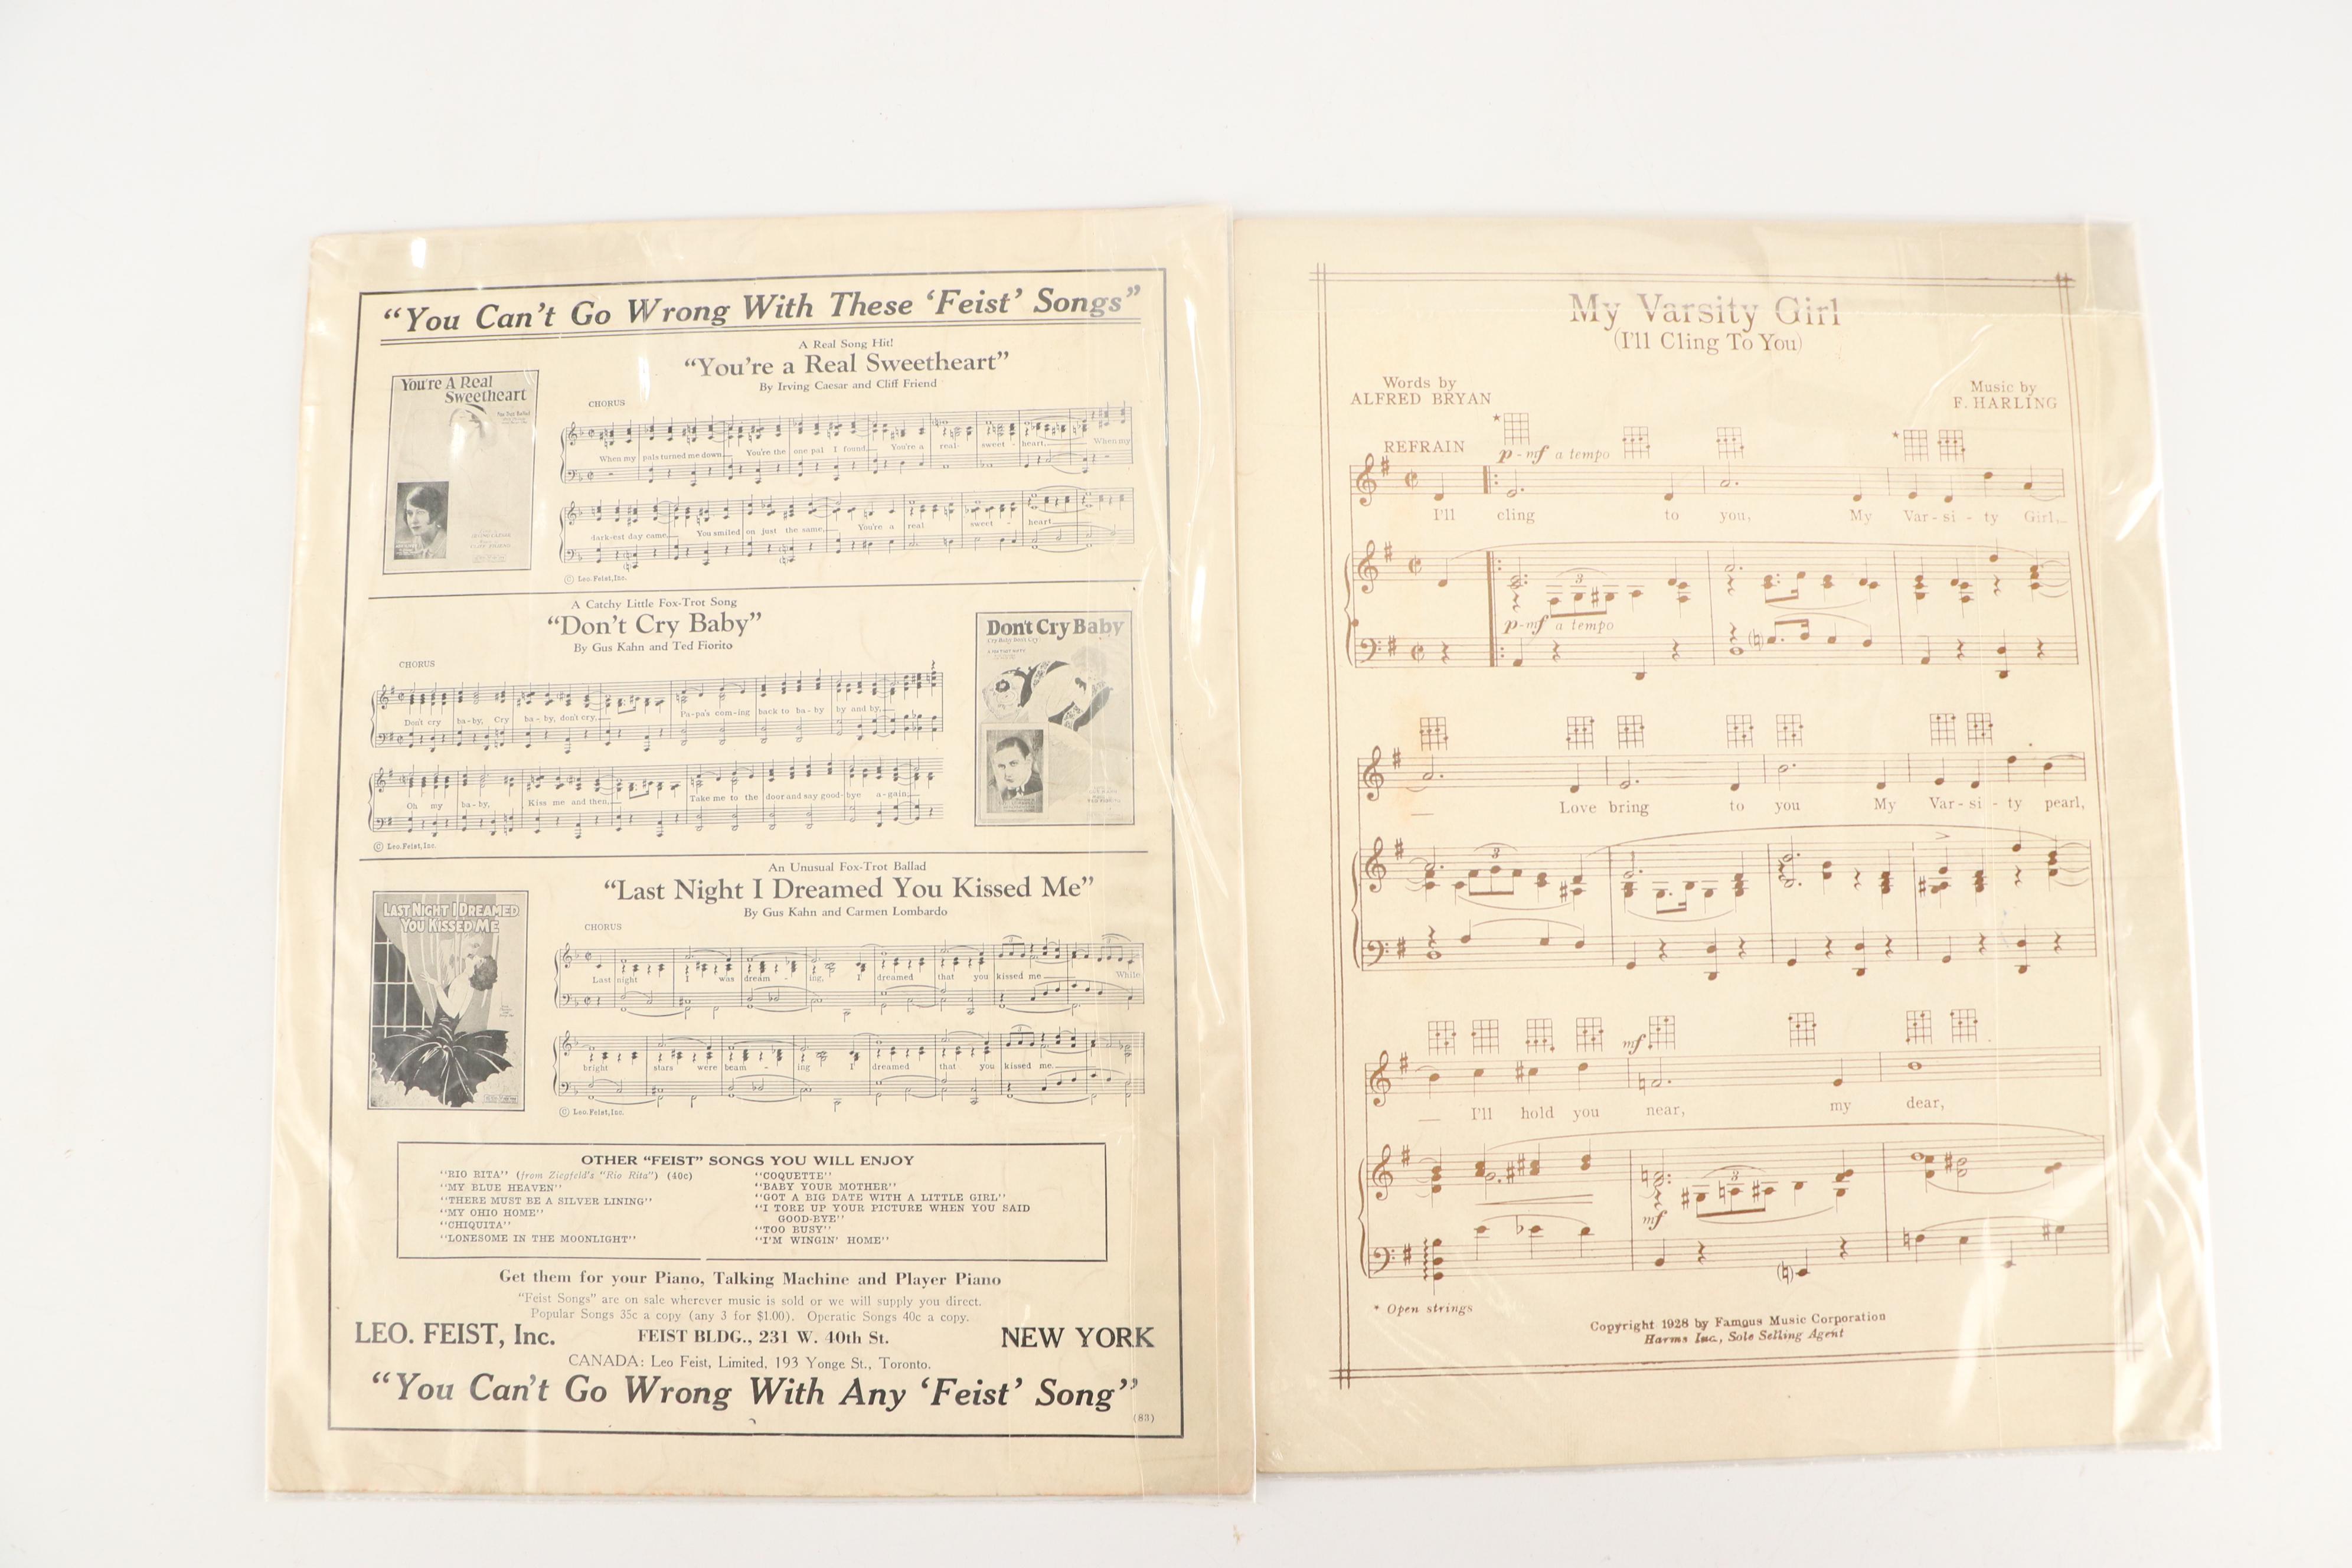 “You Can't Go Wrong With These ‘Feist’ Songs”
A Real Song Hit!
“You're a Real Sweetheart”
By Irving Caesar and Cliff Friend
You're A Real
Sweetheart
CHORUS
When my pals turned me down, You're the one pal I found, You're a real sweet - heart, When my
dark-est day came, You smiled on just the same, You're a real sweet - heart
© Leo. Feist, Inc.
A Catchy Little Fox-Trot Song
“Don't Cry Baby”
By Gus Kahn and Ted Fiorito
Don't Cry Baby
CHORUS
Don't cry ba-by, Cry ba-by, don't cry, Pa-pa's com-ing back to ba-by by and by,
Oh my ba-by, Kiss me and then, Take me to the door and say good-bye a-gain,
© Leo. Feist, Inc.
An Unusual Fox-Trot Ballad
“Last Night I Dreamed You Kissed Me”
By Gus Kahn and Carmen Lombardo
LAST NIGHT I DREAMED
YOU KISSED ME
CHORUS
Last night I was dream - ing, I dreamed that you kissed me While
bright stars were beam - ing I dreamed that you kissed me.
© Leo. Feist, Inc.
OTHER “FEIST” SONGS YOU WILL ENJOY
“RIO RITA” (from Ziegfeld's “Rio Rita”) (40c)
“MY BLUE HEAVEN”
“THERE MUST BE A SILVER LINING”
“MY OHIO HOME”
“CHIQUITA”
“LONESOME IN THE MOONLIGHT”
“COQUETTE”
“BABY YOUR MOTHER”
“GOT A BIG DATE WITH A LITTLE GIRL”
“I TORE UP YOUR PICTURE WHEN YOU SAID
GOOD-BYE”
“TOO BUSY”
“I'M WINGIN' HOME”
Get them for your Piano, Talking Machine and Player Piano
“Feist Songs” are on sale wherever music is sold or we will supply you direct.
Popular Songs 35c a copy (any 3 for $1.00). Operatic Songs 40c a copy.
LEO. FEIST, Inc. FEIST BLDG., 231 W. 40th St. NEW YORK
CANADA: Leo Feist, Limited, 193 Yonge St., Toronto.
“You Can't Go Wrong With Any ‘Feist’ Song”
(83)
My Varsity Girl
(I'll Cling To You)
Words by
ALFRED BRYAN
Music by
F. HARLING
REFRAIN
p-mf a tempo
I'll cling to you, My Var-si-ty Girl,
p-mf a tempo
Love bring to you My Var-si-ty pearl,
mf
I'll hold you near, my dear,
mf
* Open strings
Copyright 1928 by Famous Music Corporation
Harms Inc., Sole Selling Agent